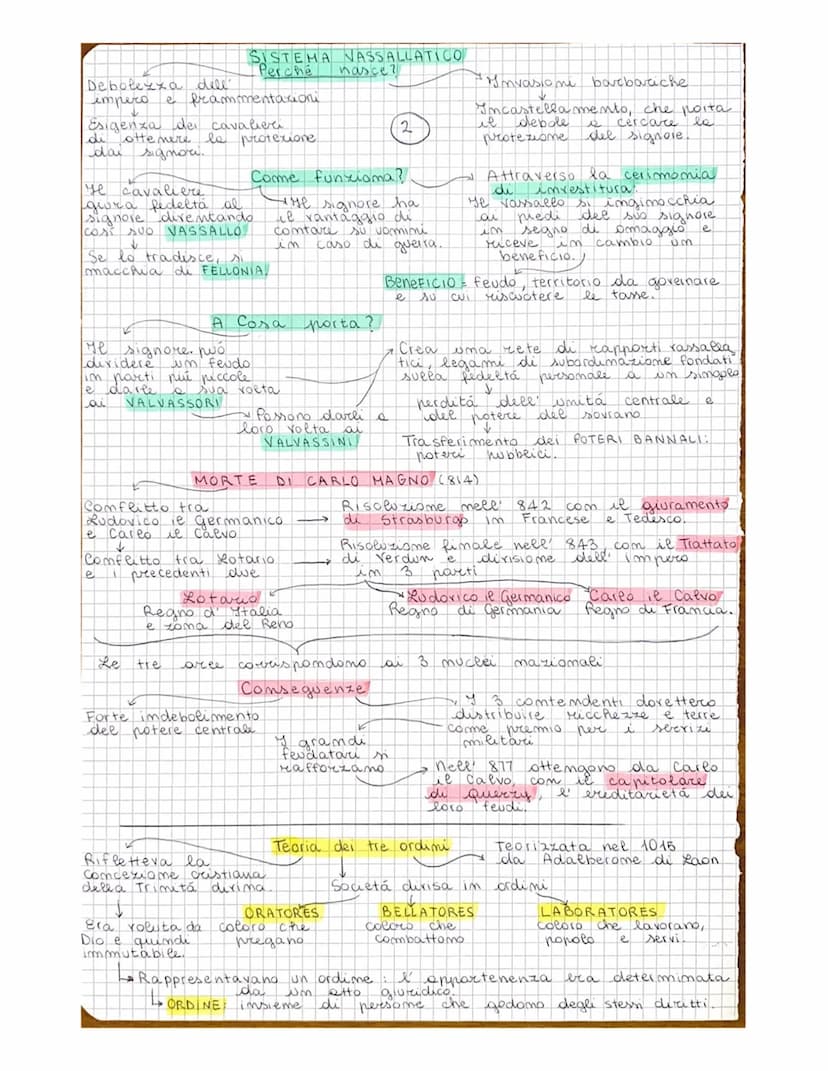 SISTEMA VASSALLATICO
Perché nasce?
Debolezza dell'
impero e frammentazioni
Esigenza dei cavalieri
di ottenere la protezione
dai signori.
Invasioni barbariche
Incastellamento, che porta
il debole a cercare la
protezione del signore.
2
Come funziona?
Il cavaliere
giura fedeltà al
signore diventando
così suo VASSALLO
Se lo tradisce, si
macchia di FELLONIA
Il signore ha
il vantaggio di
contare su uomini
in caso di guerra.
Attraverso la cerimonia
di investitura:
Il vassallo si inginocchia
ai piedi del suo signore
in segno di omaggio e
riceve in cambio un
beneficio.
BENEFICIO = feudo, territorio da governare
e su cui riscuotere le tasse.
A Cosa porta?
Il signore può
dividere un feudo
in parti più piccole
e darle a sua volta
ai VALVASSORI
Possono darli a
loro volta ai
VALVASSINI
Crea una rete di rapporti vassalla
tici, legami di subordinazione fondati
sulla fedeltà personale a un singolo
perdita dell' unità centrale e
del potere del sovrano
Trasferimento dei POTERI BANNALI:
poteri pubblici.
MORTE DI CARLO MAGNO (814)
Conflitto tra
Ludovico il Germanico
e Carlo il Calvo
Risoluzione nell' 842 con il giuramento
di Strasburgo in Francese e Tedesco.
Conflitto tra Lotario
e i precedenti due
Risoluzione finale nell' 843 con il Trattato
di Verdun e divisione dell' impero
in 3 parti
Lotario
Regno d' Italia
e zona del Reno
Ludovico il Germanico
Regno di Germania
Carlo il Calvo
Regno di Francia.
Le tre aree corrispondono ai 3 nuclei nazionali
Conseguenze
Forte indebolimento
del potere centrale
I 3 contendenti dovettero
distribuire ricchezze e terre
come premio per i servizi
militari
I grandi
feudatari si
rafforzano
Nell' 877 ottengono da Carlo
il Calvo, con il capitolare
di Quierzy, l' ereditarietà dei
loro feudi.
Teoria dei tre ordini
Rifletteva la
concezione cristiana
della Trinità divina.
Teorizzata nel 1015
da Adalberone di Laon
Società divisa in ordini
Era voluta da
Dio e quindi
immutabile.
ORATORES
coloro che
pregano
BELLATORES
coloro che
combattono
LABORATORES
coloro che lavorano,
popolo e servi.
Rappresentavano un ordine: l' appartenenza era determinata
da un atto giuridico.
ORDINE: insieme di persone che godono degli stessi diritti.